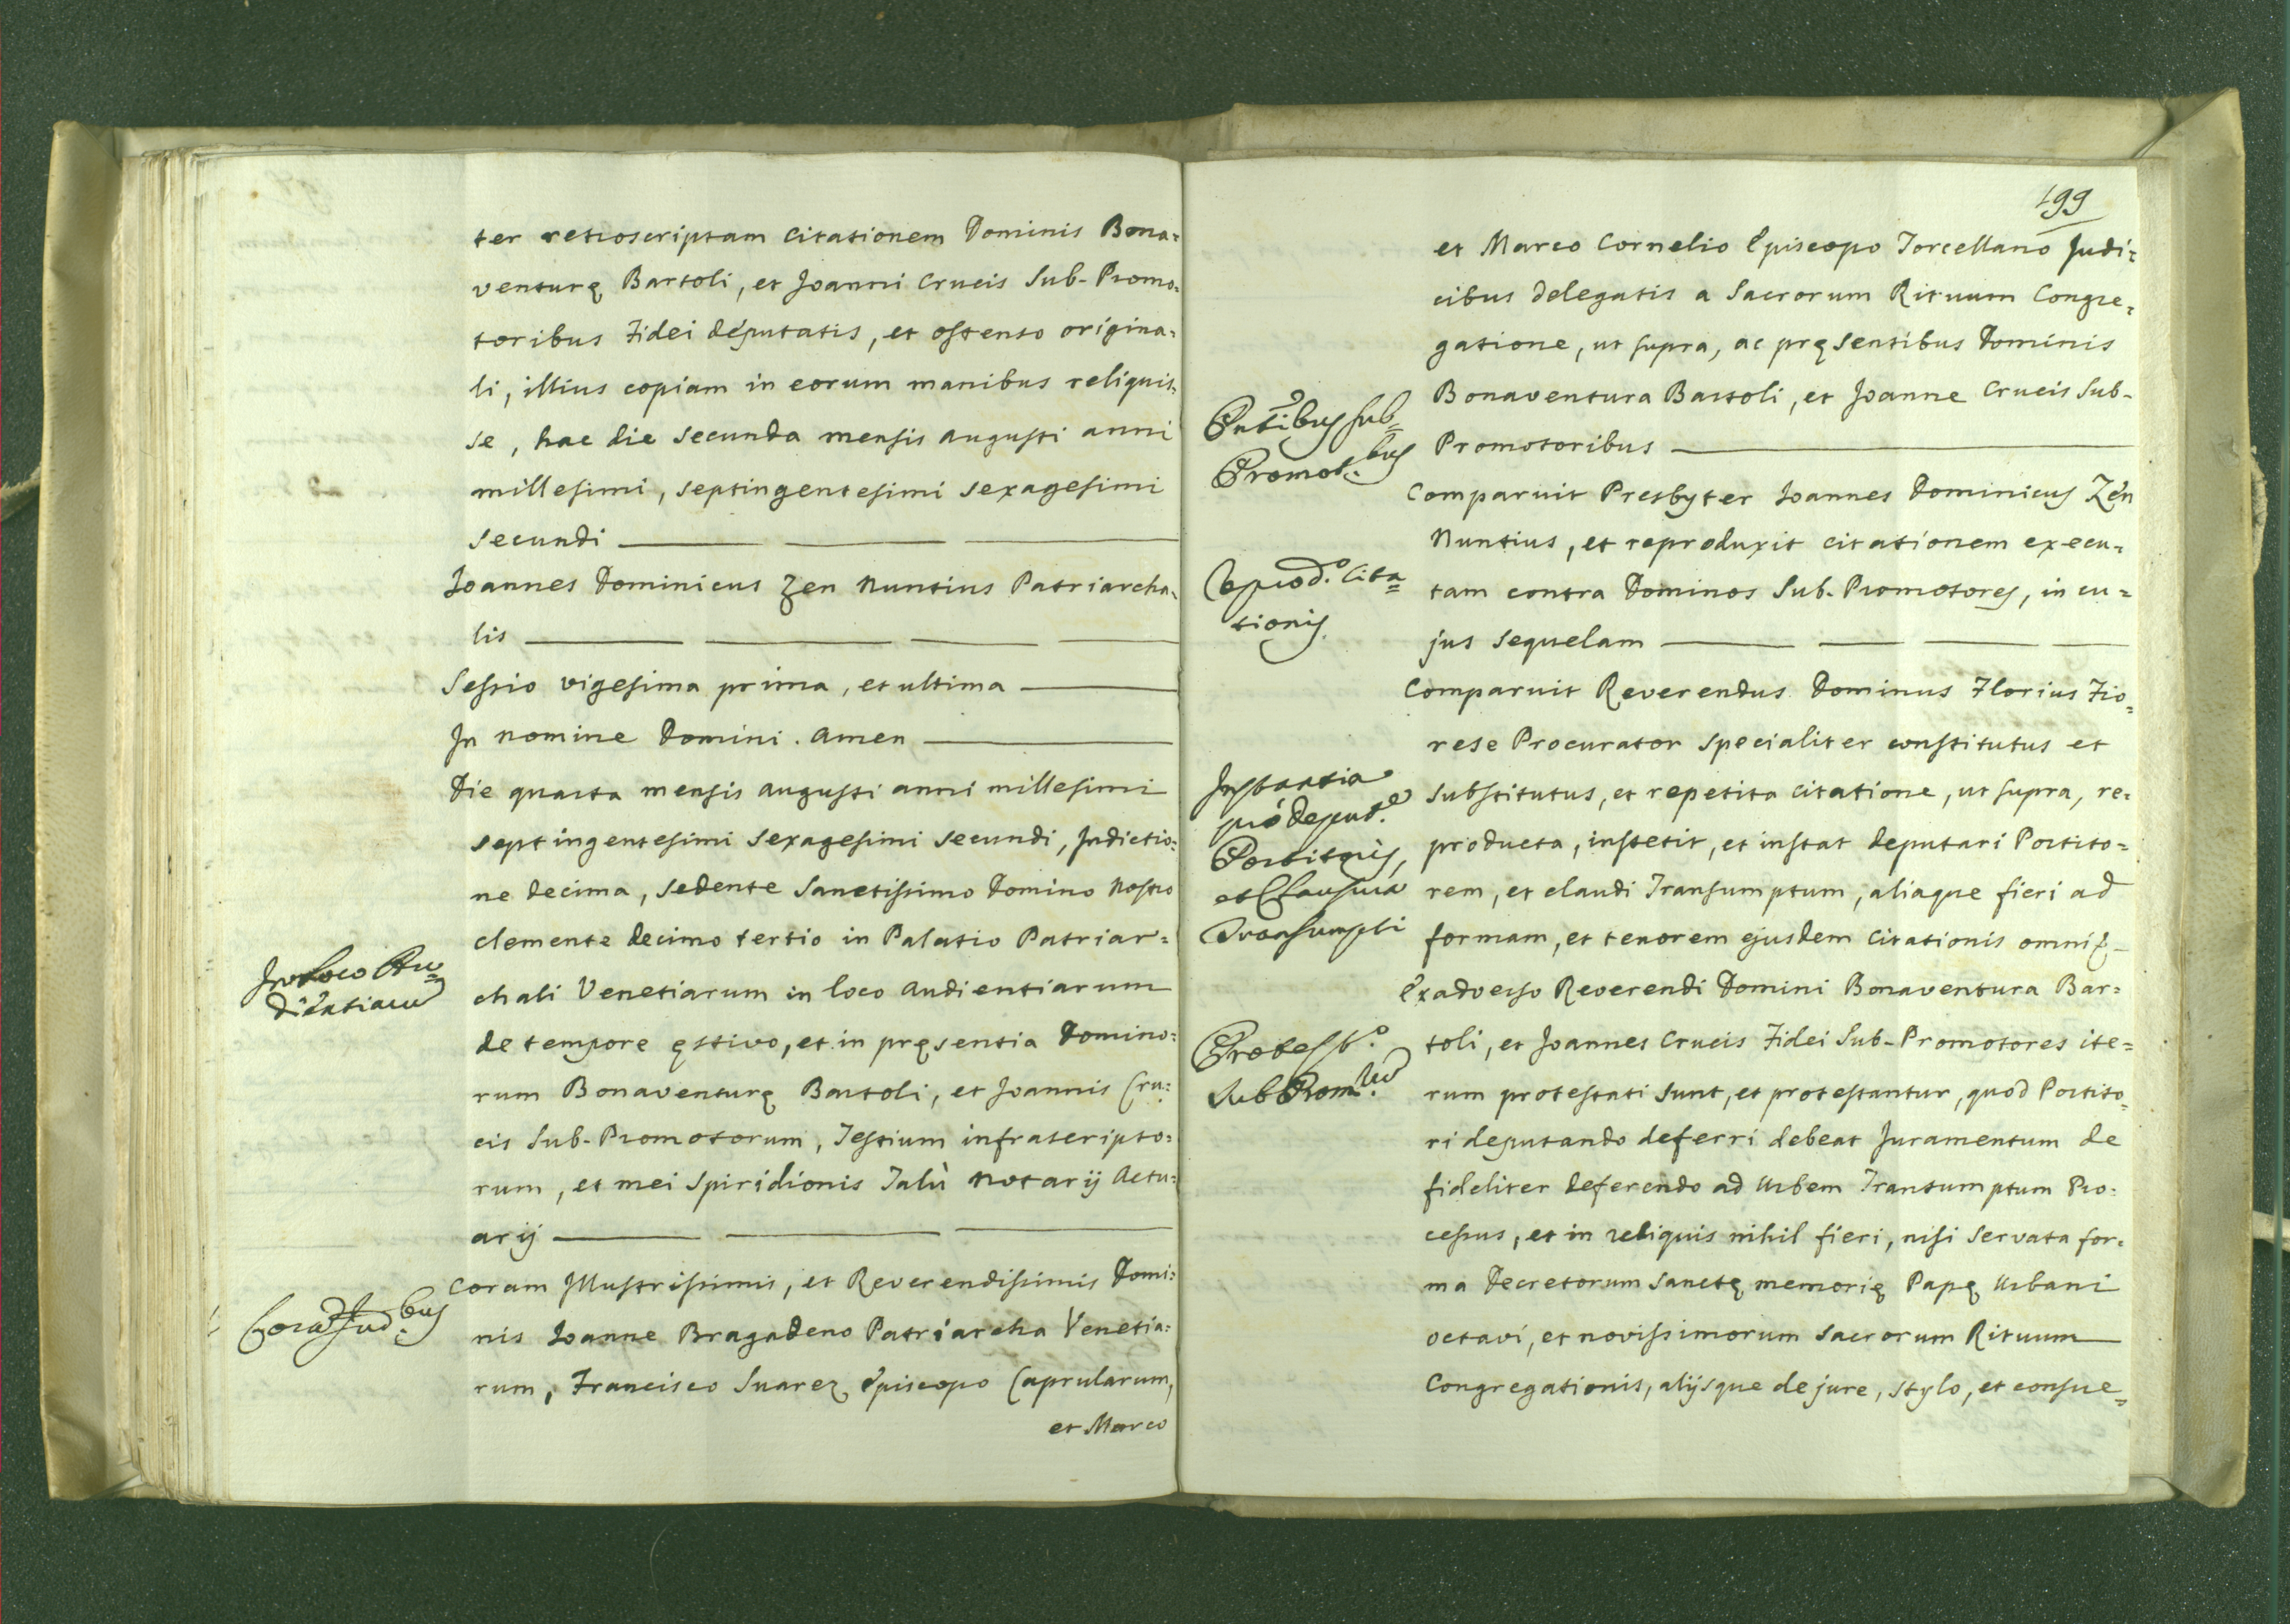 ter retroscriptam citationem Dominis Bona=
venturę Bartoli, et Joanni Crucis Sub-Promo=
toribus Fidei deputatis, et ostenso origina=
li, illius copiam in eorum manibus reliquis=
se, hac die secunda mensis augusti anni
millesimi, septingentesimi sexagesimi
secundi
Joannes Dominicus Zen Nuntius Patriarcha=
lis
Sessio vigesima prima, et ultima
In nomine Domini. Amen
Die quarta mensis augusti anni millesimi
septingentesimi sexagesimi secundi, Indictio=
ne decima, sedente Sanctissimo Domino Nostro
Clemente decimo tertio in Palatio Patriar=
In loco Au=
dientiarum
chali Venetiarum in loco audientiarum
de tempore ęstivo, et in pręsentia Domino=
rum Bonaventurę Bartoli, et Joannis Cru=
cis Sub-Promotorum, Testium infrascripto=
rum, et mei Spiridionis Talù Notarij Actu=
arij
Coram Jud.bus
Coram Illustrissimis, et Reverendissimis Domi=
nis Joanne Bragadeno Patriarcha Venetia=
rum, Francisco Suarez Episcopo Caprularum,
et Marco
199
et Marco Cornelio Episcopo Torcellano Judi=
cibus delegatis a Sacrorum Rituum Congre=
gatione, ut supra, ac pręsentibus Dominis
Bonaventura Bartoli, et Joanne Crucis Sub-
Pntibus sub=
Promot.bus
Promotoribus
Comparuit Presbyter Joannes Dominicus Zen
Nuntius, et reproduxit citationem execu=
Reprod.o Cita=
tionis
tam contra Dominos Sub-Promotores, in cu=
jus sequelam
Comparuit Reverendus Dominus Florius Fio=
rese Procurator specialiter constitutus et
Instantia
pro deput.e
Portitoris,
et Clausura
Transumpti
substitutus, et repetita citatione, ut supra, re=
producta, institit, et instat deputari Portito=
rem, et claudi Transumptum, aliaque fieri ad
formam, et tenorem ejusdem citationis omni
Exadverso Reverendi Domini Bonaventura Bar=
Protest.o
Sub Prom.rum
toli, et Joannes Crucis Fidei Sub-Promotores ite=
rum protestati sunt, et protestantur, quod Portito=
ri deputando deferri debeat Juramentum de
fideliter deferendo ad Urbem Transumptum Pro=
cessus, et in reliquis nihil fieri, nisi servata for=
ma Decretorum sanctę memorię Papę Urbani
octavi, et novissimorum Sacrorum Rituum
Congregationis, alijsque de jure, stylo, et consue=